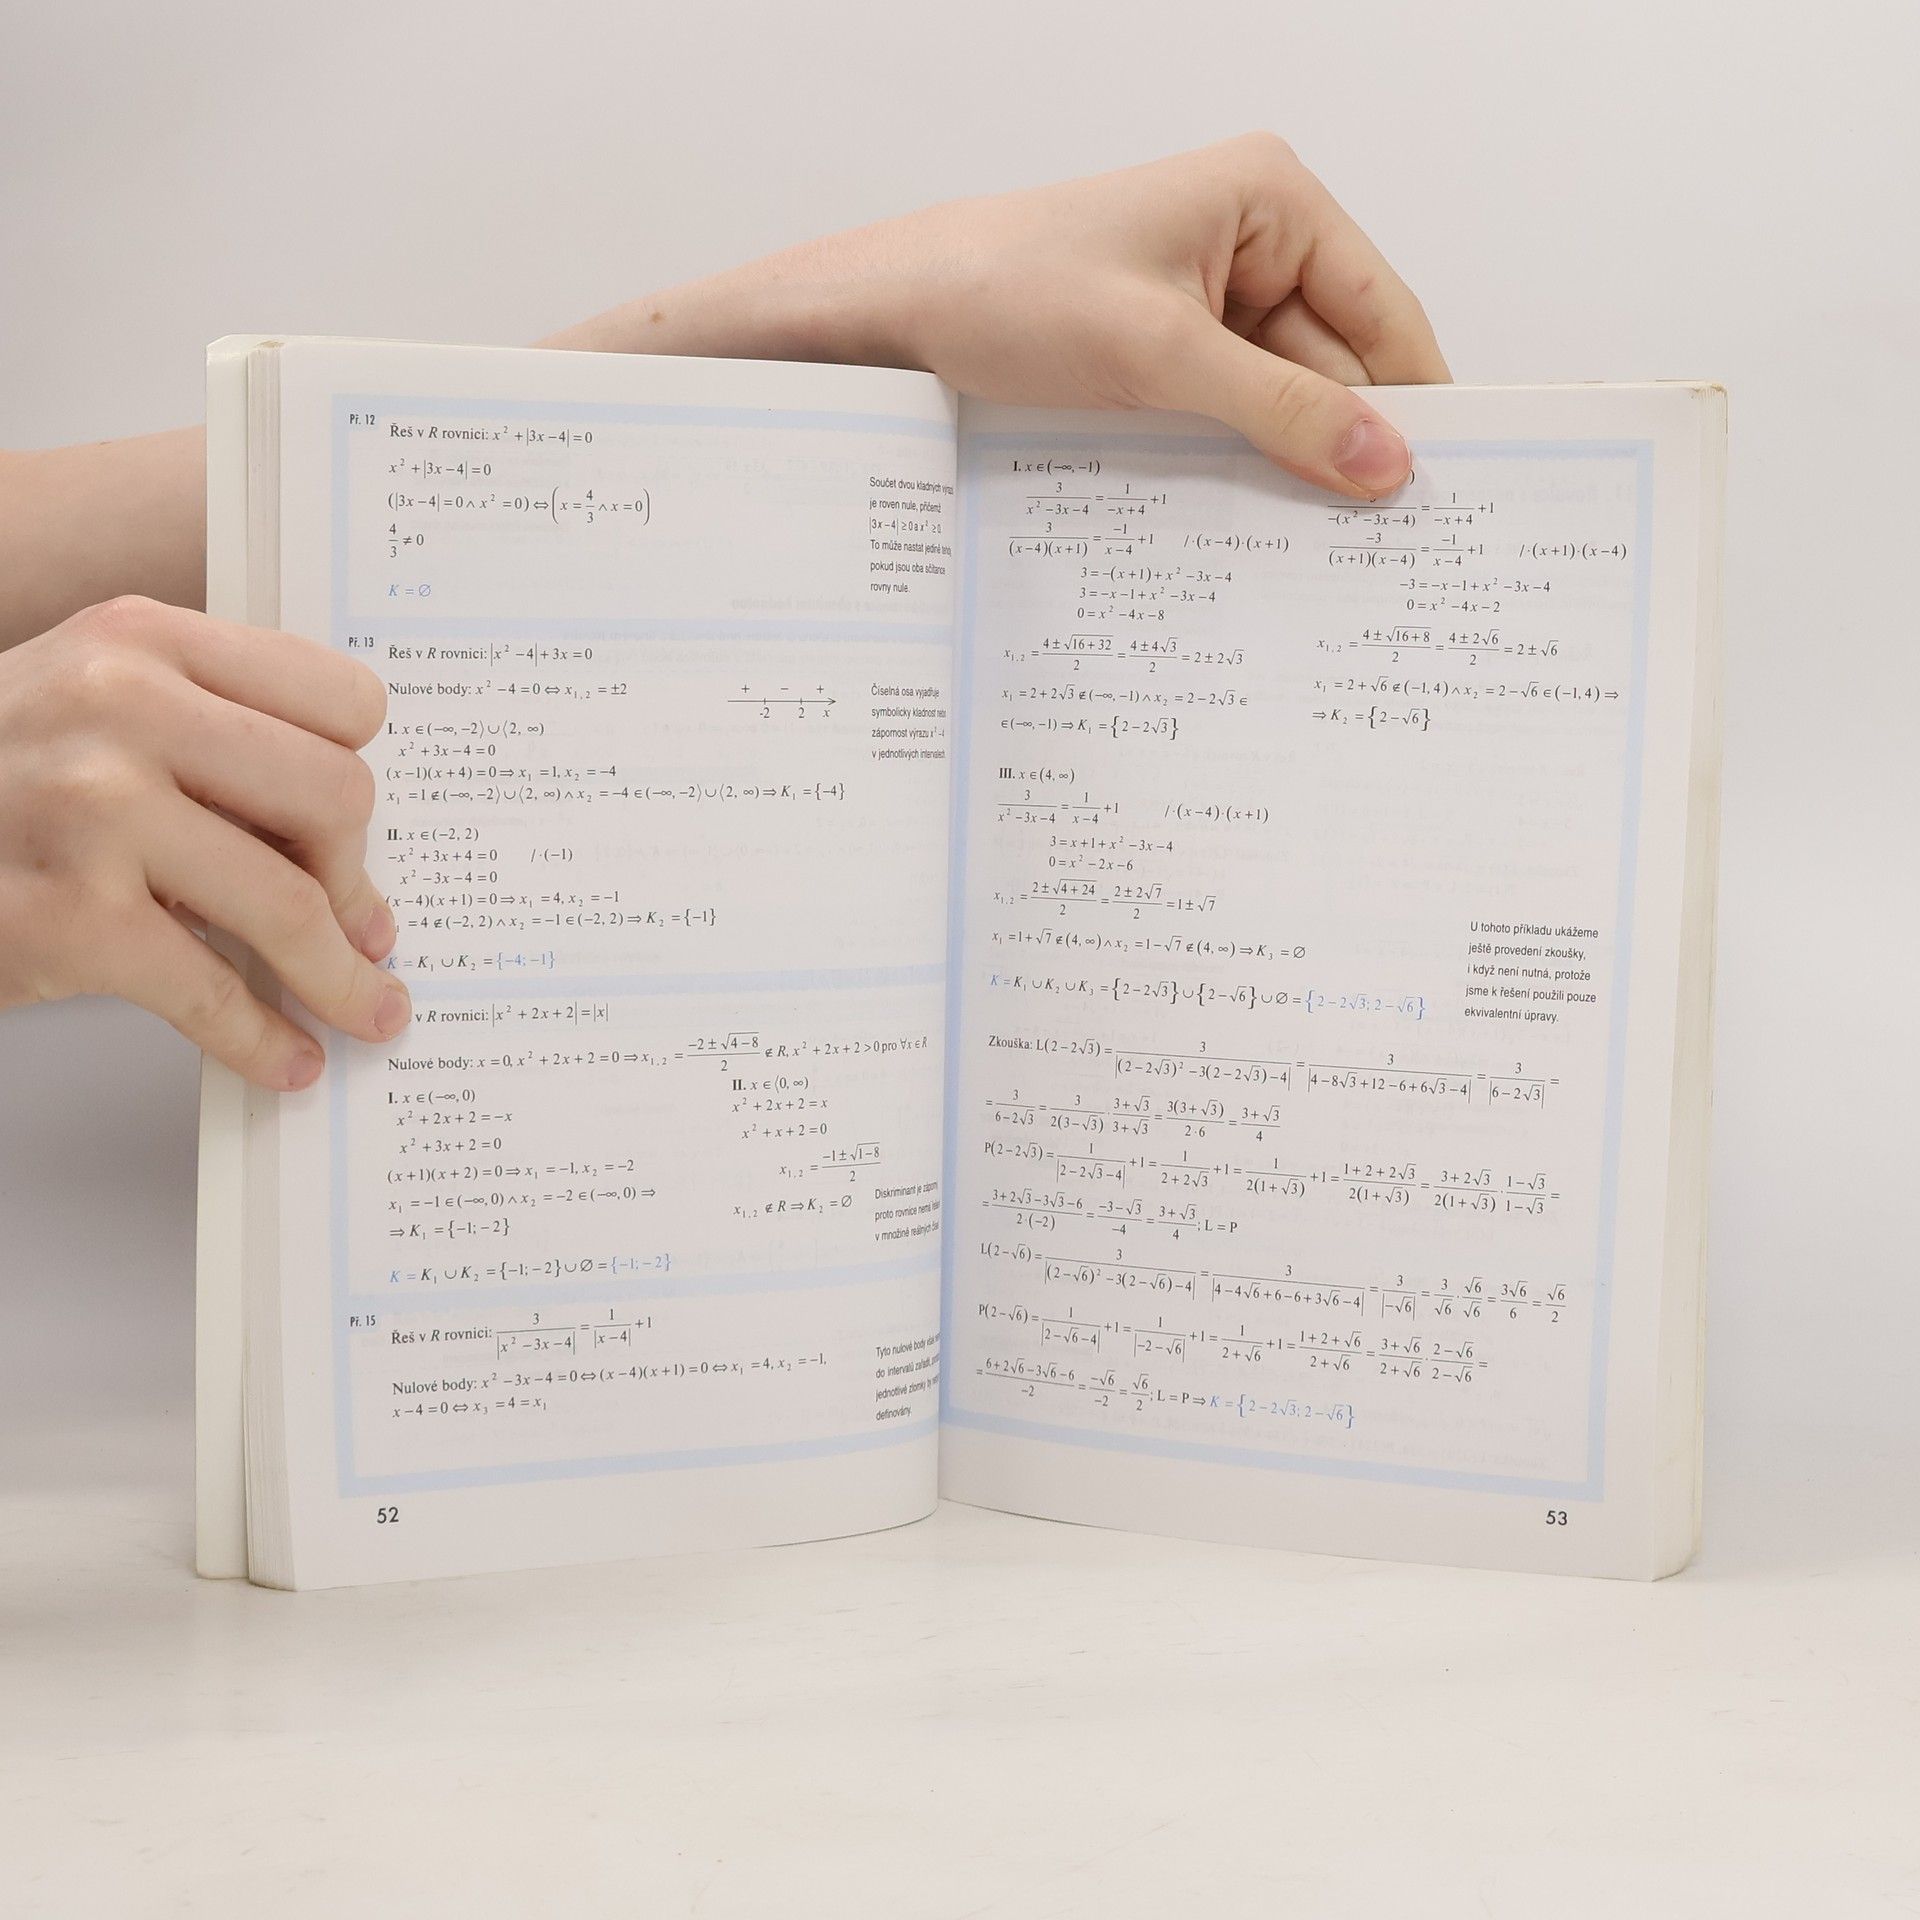 Př. 12
Řeš v R rovnici: x² + |3x − 4| = 0
x² + |3x − 4| = 0
(|3x − 4| = 0 ∧ x² = 0) ⇔ (x = 4/3 ∧ x = 0)
4/3 ≠ 0
K = ∅
Součet dvou kladných
je roven nule, přičemž
|3x − 4| ≥ 0 a x² ≥ 0.
To může nastat jedině
pokud jsou oba sčítance
rovny nule.
Př. 13
Řeš v R rovnici: |x² − 4| + 3x = 0
Nulové body: x² − 4 = 0 ⇔ x₁,₂ = ±2
+ − +
-2 2 x
Číselná osa vyjadřuje
symbolicky kladnost nebo
zápornost výrazu x² − 4
v jednotlivých intervalech.
I. x ∈ (−∞, −2⟩ ∪ ⟨2, ∞)
x² + 3x − 4 = 0
(x − 1)(x + 4) = 0 ⇒ x₁ = 1, x₂ = −4
x₁ = 1 ∉ (−∞, −2⟩ ∪ ⟨2, ∞) ∧ x₂ = −4 ∈ (−∞, −2⟩ ∪ ⟨2, ∞) ⇒ K₁ = {−4}
II. x ∈ (−2, 2)
−x² + 3x + 4 = 0 /·(−1)
x² − 3x − 4 = 0
(x − 4)(x + 1) = 0 ⇒ x₁ = 4, x₂ = −1
= 4 ∉ (−2, 2) ∧ x₂ = −1 ∈ (−2, 2) ⇒ K₂ = {−1}
K = K₁ ∪ K₂ = {−4; −1}
v R rovnici: |x² + 2x + 2| = |x|
Nulové body: x = 0, x² + 2x + 2 = 0 ⇒ x₁,₂ = (−2 ± √(4 − 8))/2 ∉ R, x² + 2x + 2 > 0 pro ∀x ∈ R
I. x ∈ (−∞, 0)
x² + 2x + 2 = −x
x² + 3x + 2 = 0
(x + 1)(x + 2) = 0 ⇒ x₁ = −1, x₂ = −2
x₁ = −1 ∈ (−∞, 0) ∧ x₂ = −2 ∈ (−∞, 0) ⇒
⇒ K₁ = {−1; −2}
II. x ∈ ⟨0, ∞)
x² + 2x + 2 = x
x² + x + 2 = 0
x₁,₂ = (−1 ± √(1 − 8))/2
x₁,₂ ∉ R ⇒ K₂ = ∅
Diskriminant je záporný
proto rovnice nemá
v množině reálných čísel
K = K₁ ∪ K₂ = {−1; −2} ∪ ∅ = {−1; −2}
Př. 15
Řeš v R rovnici: 3/|x² − 3x − 4| = 1/|x − 4| + 1
Nulové body: x² − 3x − 4 = 0 ⇔ (x − 4)(x + 1) = 0 ⇔ x₁ = 4, x₂ = −1,
x − 4 = 0 ⇔ x₃ = 4 = x₁
Tyto nulové body však
do intervalů
jednotlivé zlomky by
definovány.
52
I. x ∈ (−∞, −1)
3/(x² − 3x − 4) = 1/(−x + 4) + 1
3/((x − 4)(x + 1)) = −1/(x − 4) + 1 /·(x − 4)·(x + 1)
3 = −(x + 1) + x² − 3x − 4
3 = −x − 1 + x² − 3x − 4
0 = x² − 4x − 8
x₁,₂ = (4 ± √(16 + 32))/2 = (4 ± 4√3)/2 = 2 ± 2√3
x₁ = 2 + 2√3 ∉ (−∞, −1) ∧ x₂ = 2 − 2√3 ∈
∈ (−∞, −1) ⇒ K₁ = {2 − 2√3}
)
3/(−(x² − 3x − 4)) = 1/(−x + 4) + 1
−3/((x + 1)(x − 4)) = −1/(x − 4) + 1 /·(x + 1)·(x − 4)
−3 = −x − 1 + x² − 3x − 4
0 = x² − 4x − 2
x₁,₂ = (4 ± √(16 + 8))/2 = (4 ± 2√6)/2 = 2 ± √6
x₁ = 2 + √6 ∉ (−1, 4) ∧ x₂ = 2 − √6 ∈ (−1, 4) ⇒
⇒ K₂ = {2 − √6}
III. x ∈ (4, ∞)
3/(x² − 3x − 4) = 1/(x − 4) + 1 /·(x − 4)·(x + 1)
3 = x + 1 + x² − 3x − 4
0 = x² − 2x − 6
x₁,₂ = (2 ± √(4 + 24))/2 = (2 ± 2√7)/2 = 1 ± √7
x₁ = 1 + √7 ∉ (4, ∞) ∧ x₂ = 1 − √7 ∉ (4, ∞) ⇒ K₃ = ∅
K = K₁ ∪ K₂ ∪ K₃ = {2 − 2√3} ∪ {2 − √6} ∪ ∅ = {2 − 2√3; 2 − √6}
U tohoto příkladu ukážeme
ještě provedení zkoušky,
i když není nutná, protože
jsme k řešení použili pouze
ekvivalentní úpravy.
Zkouška: L(2 − 2√3) = 3/|(2 − 2√3)² − 3(2 − 2√3) − 4| = 3/|4 − 8√3 + 12 − 6 + 6√3 − 4| = 3/|6 − 2√3| =
= 3/(6 − 2√3) = 3/(2(3 − √3)) · (3 + √3)/(3 + √3) = 3(3 + √3)/(2·6) = (3 + √3)/4
P(2 − 2√3) = 1/|2 − 2√3 − 4| + 1 = 1/(2 + 2√3) + 1 = 1/(2(1 + √3)) + 1 = (1 + 2 + 2√3)/(2(1 + √3)) = (3 + 2√3)/(2(1 + √3)) · (1 − √3)/(1 − √3) =
= (3 + 2√3 − 3√3 − 6)/(2·(−2)) = (−3 − √3)/(−4) = (3 + √3)/4; L = P
L(2 − √6) = 3/|(2 − √6)² − 3(2 − √6) − 4| = 3/|4 − 4√6 + 6 − 6 + 3√6 − 4| = 3/|−√6| = 3/√6 · √6/√6 = 3√6/6 = √6/2
P(2 − √6) = 1/|2 − √6 − 4| + 1 = 1/|−2 − √6| + 1 = 1/(2 + √6) + 1 = (1 + 2 + √6)/(2 + √6) = (3 + √6)/(2 + √6) · (2 − √6)/(2 − √6) =
= (6 + 2√6 − 3√6 − 6)/(−2) = −√6/(−2) = √6/2; L = P ⇒ K = {2 − 2√3; 2 − √6}
53